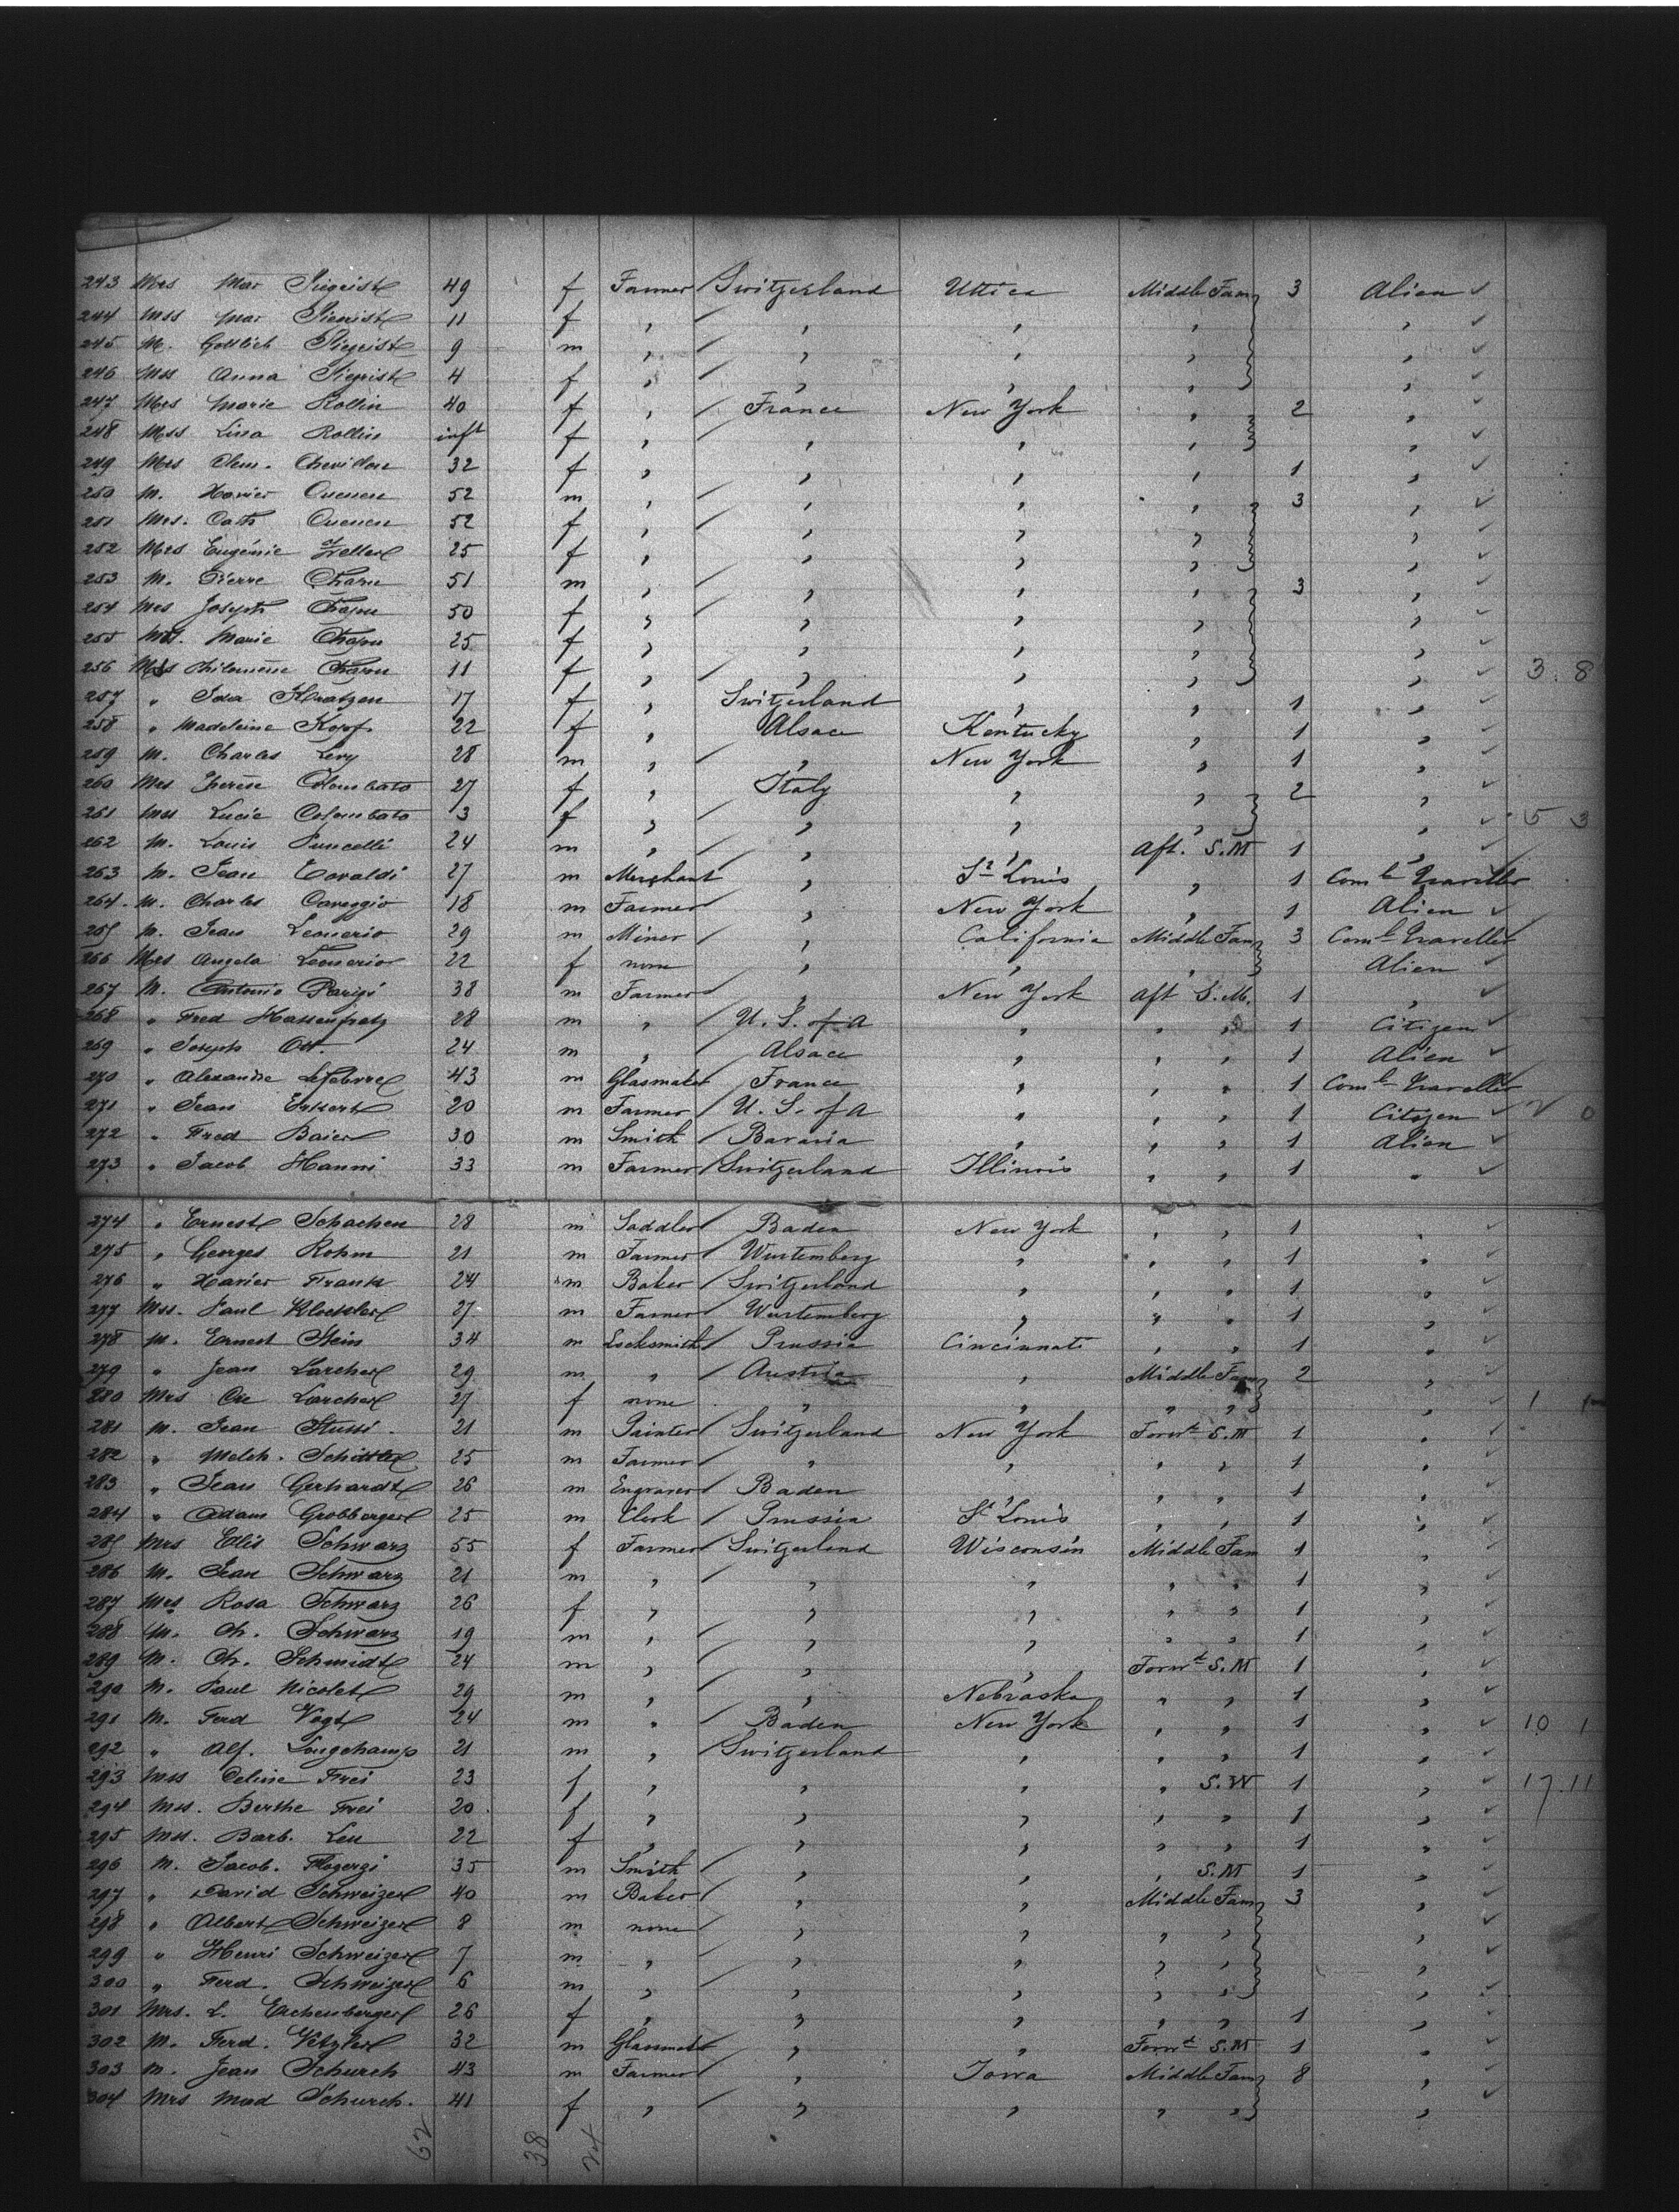 243 Mrs Mar Siegrist 49 f Farmer Switzerland Uttica Middle Fam 3 Alien
244 Mss Mar Siegrist 11 f " " " " "
245 M. Gottlieb Siegrist 9 m " " " " "
246 Mss Anna Siegrist 4 f " " " " "
247 Mrs Marie Rollin 40 f " France New York " 2 "
248 Mss Lina Rollin inft f " " " " "
249 Mrs Clem. Chevillon 32 f " " " " 1 "
250 M. Xavier Quenen 52 m " " " " 3 "
251 Mrs. Cath Quenen 52 f " " " " "
252 Mrs Eugénie Zeller 25 f " " " " "
253 M. Pierre Chapu 51 m " " " " 3 "
254 Mrs Joseph Chapu 50 f " " " " "
255 Mss. Marie Chapu 25 f " " " " "
256 Mss Philomène Chapu 11 f " " " " " 3. 8
257 " Ida Hratzen 17 f " Switzerland " " 1 "
258 " Madeleine Kopf 22 f " Alsace Kentucky " 1 "
259 M. Charles Levy 28 m " " New York " 1 "
260 Mrs Therese Colombato 27 f " Italy " " 2 "
261 Mss Lucie Colombato 3 f " " " " " 5 3
262 M. Louis Puncelli 24 m " " " Aft. S.M 1 "
263 M. Jean 27 m Merchant " St Louis " 1 Coml Traveller
264 M. Charles Careggio 18 m Farmer " New York " 1 Alien
265 M. Jean Leonerio 29 m Miner " California Middle Fam 3 Coml Traveller
266 Mrs Angela Leonerio 22 f none " " " Alien
267 M. Antonio Parigi 38 m Farmer " New York Aft S.M. 1 "
268 " Fred Hassenfratz 28 m " U. S. of A " " " 1 Citizen
269 " Joseph Ott. 24 m " Alsace " " " 1 Alien
270 " Alexandre Lefebvre 43 m Glasmaker France " " " 1 Coml Traveller
271 " Jean 20 m Farmer U. S. of A " " " 1 Citizen 2 0
272 " Fred Baier 30 m Smith Bavaria " " " 1 Alien
273 " Jacob Hanni 33 m Farmer Switzerland Illinois " " 1 "
274 " Ernest Schachen 28 m Saddler Baden New York " " 1 "
275 " Georges Rohm 21 m Farmer Wurtemberg " " " 1 "
276 " Xavier Frank 24 m Baker Switzerland " " " 1 "
277 Mss. Paul Klockler 27 m Farmer Wurtemberg " " " 1 "
278 M. Ernest Stein 34 m Locksmith Prussia Cincinnati " " 1 "
279 " Jean Larcher 29 m " Austria " Middle Fam 2 "
280 Mrs Cre Larcher 27 f none " " " " " 1
281 M. Jean Stussi. 21 m Painter Switzerland New York Forwt S.M 1 "
282 " Melch. Schittler 25 m Farmer " " " " 1 "
283 " Jean Gerhardt 26 m Engraver Baden " " " 1 "
284 " Adam Grobberger 25 m Clerk Prussia St Louis " " 1 "
285 Mrs Elis Schwarz 55 f Farmer Switzerland Wisconsin Middle Fam 1 "
286 M. Jean Schwarz 21 m " " " " " 1 "
287 Mrs Rosa Schwarz 26 f " " " " " 1 "
288 M. Ch. Schwarz 19 m " " " " " 1 "
289 M. Ch. Schmidt 24 m " " " Forwt S.M 1 "
290 M. Paul Nicolet 29 m " " Nebraska " " 1 "
291 M. Ferd Vogt 24 m " Baden New York " " 1 " 10 1
292 " Alf. Longchamp 21 m " Switzerland " " " 1 "
293 Mss Celine Frei 23 f " " " " S.W 1 " 17.11
294 Mss. Berthe Frei 20. f " " " " " 1 "
295 Mss. Barb. Leu 22 f " " " " " 1 "
296 M. Jacob. 35 m Smith " " " S.M 1 "
297 " David Schweizer 40 m Baker " " Middle Fam 3 "
298 " Albert Schweizer 8 m none " " " " "
299 " Henri Schweizer 7 m " " " " " "
300 " Ferd. Schweizer 6 m " " " " " "
301 Mrs. L. Eschenberger 26 f " " " " " 1 "
302 M. Ferd. Vetzler 32 m Glasmaker " " Forwt S.M 1 "
303 M. Jean Schurch 43 m Farmer " Iowa Middle Fam 8 "
304 Mrs Mad Schurch. 41 f " " " " " "
62 38 24